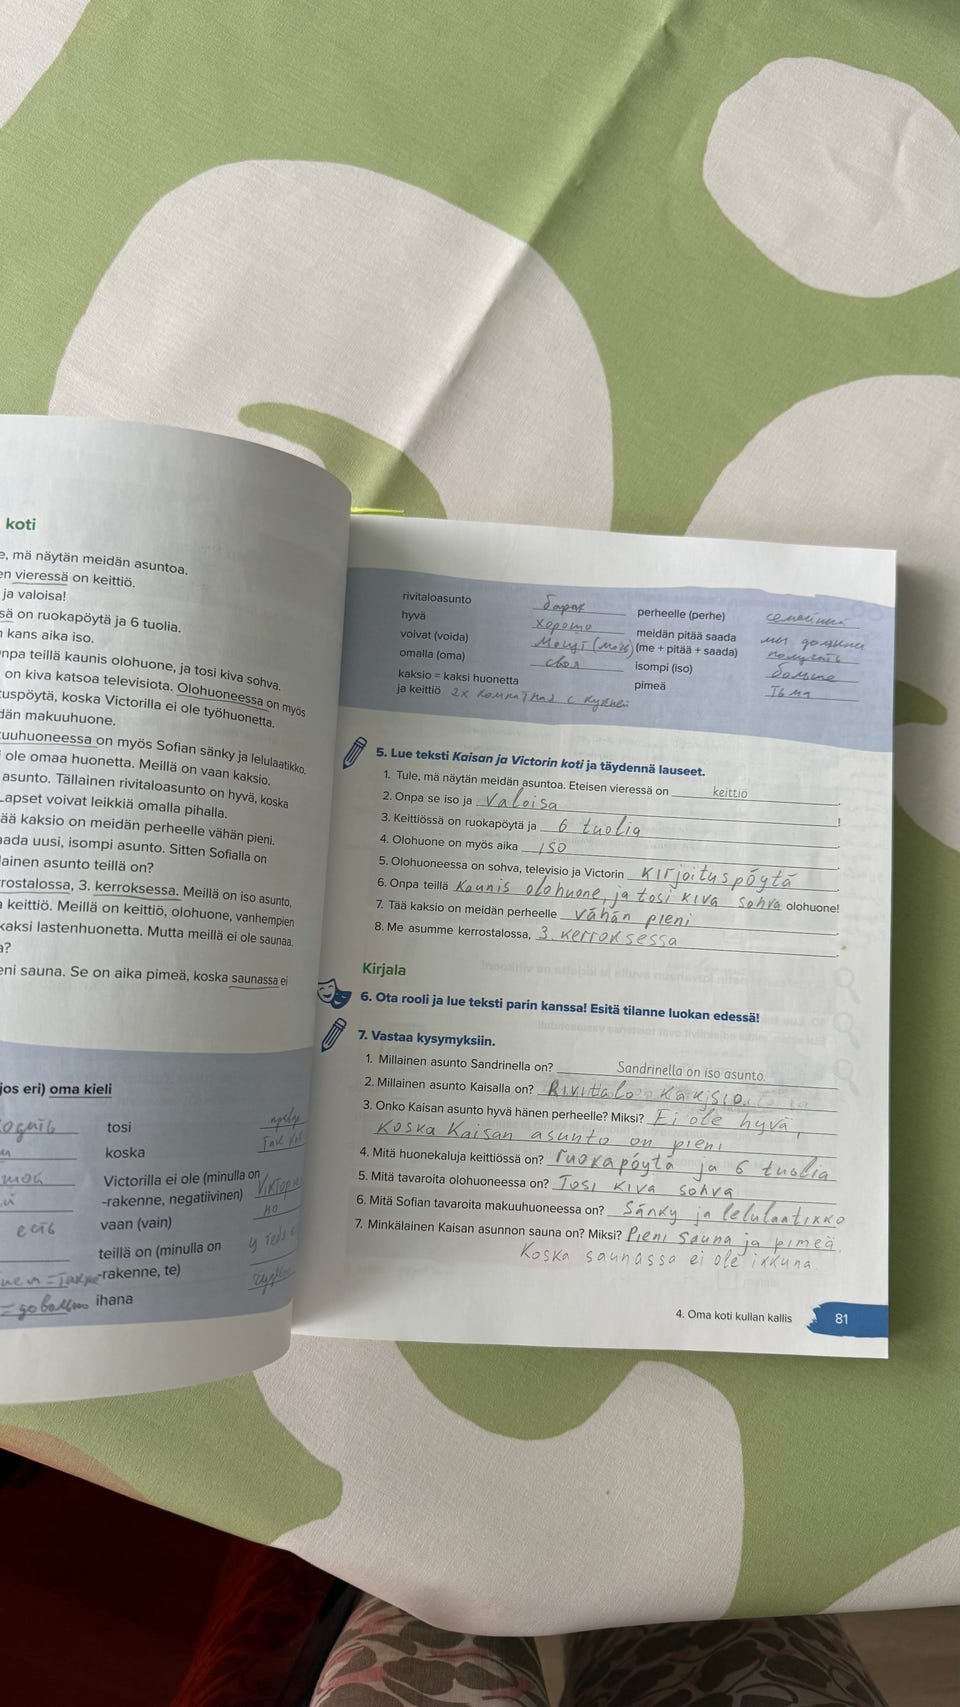 koti
e, mä näytän meidän asuntoa.
en vieressä on keittiö.
ja valoisa!
sä on ruokapöytä ja 6 tuolia.
n kans aika iso.
npa teillä kaunis olohuone, ja tosi kiva sohva.
on kiva katsoa televisiota. Olohuoneessa on myös
tuspöytä, koska Victorilla ei ole työhuonetta.
dän makuuhuone.
uuhuoneessa on myös Sofian sänky ja lelulaatikko.
i ole omaa huonetta. Meillä on vaan kaksio.
asunto. Tällainen rivitaloasunto on hyvä, koska
Lapset voivat leikkiä omalla pihalla.
ää kaksio on meidän perheelle vähän pieni.
aada uusi, isompi asunto. Sitten Sofialla on
lainen asunto teillä on?
rrostalossa, 3. kerroksessa. Meillä on iso asunto,
a keittiö. Meillä on keittiö, olohuone, vanhempien
kaksi lastenhuonetta. Mutta meillä ei ole saunaa.
a?
eni sauna. Se on aika pimeä, koska saunassa ei
jos eri) oma kieli
tosi
koska
Victorilla ei ole (minulla on
-rakenne, negatiivinen)
vaan (vain) но
есть
teillä on (minulla on
-rakenne, te)
= довольно ihana
rivitaloasunto барак
hyvä хорошо
voivat (voida) могут (мочь)
omalla (oma) своя
kaksio = kaksi huonetta
ja keittiö 2х комнатная с кухней
perheelle (perhe)
meidän pitää saada мы должны
(me + pitää + saada) получить
isompi (iso) больше
pimeä тьма
5. Lue teksti Kaisan ja Victorin koti ja täydennä lauseet.
1. Tule, mä näytän meidän asuntoa. Eteisen vieressä on keittiö.
2. Onpa se iso ja valoisa!
3. Keittiössä on ruokapöytä ja 6 tuolia.
4. Olohuone on myös aika iso.
5. Olohuoneessa on sohva, televisio ja Victorin kirjoituspöytä.
6. Onpa teillä kaunis olohuone, ja tosi kiva sohva olohuone!
7. Tää kaksio on meidän perheelle vähän pieni.
8. Me asumme kerrostalossa, 3. kerroksessa.
Kirjala
6. Ota rooli ja lue teksti parin kanssa! Esitä tilanne luokan edessä!
7. Vastaa kysymyksiin.
1. Millainen asunto Sandrinella on? Sandrinella on iso asunto.
2. Millainen asunto Kaisalla on? Rivitalo kaksio.
3. Onko Kaisan asunto hyvä hänen perheelle? Miksi? Ei ole hyvä,
koska Kaisan asunto on pieni
4. Mitä huonekaluja keittiössä on? ruokapöytä ja 6 tuolia
5. Mitä tavaroita olohuoneessa on? Tosi kiva sohva
6. Mitä Sofian tavaroita makuuhuoneessa on? Sänky ja lelulaatikko
7. Minkälainen Kaisan asunnon sauna on? Miksi? Pieni sauna ja pimeä.
Koska saunassa ei ole ikkuna.
4. Oma koti kullan kallis 81